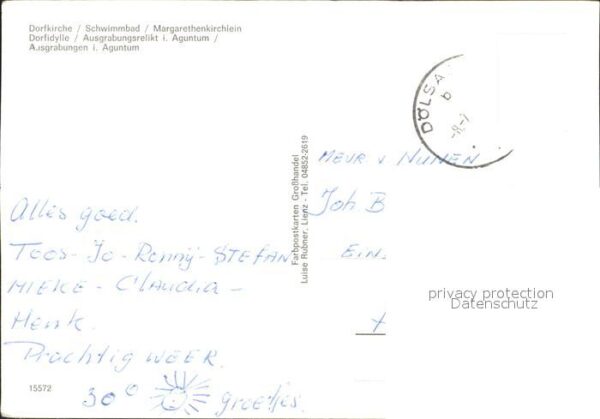 Dorfkirche / Schwimmbad / Margarethenkirchlein
Dorfidylle / Ausgrabungsrelikt i. Aguntum /
Ausgrabungen i. Aguntum
DÖLSA
b
-8.-7
Farbpostkarten Großhandel
Luise Rubner, Lienz - Tel. 04852-2619
MEUR v NUNEN
Joh B
EIN
privacy protection
Datenschutz
Alles goed.
TOOS - Jo - Ronny - STEFAN
MIEKE - Claudia -
Henk.
Prachtig WEER.
30° groetjes.
15572